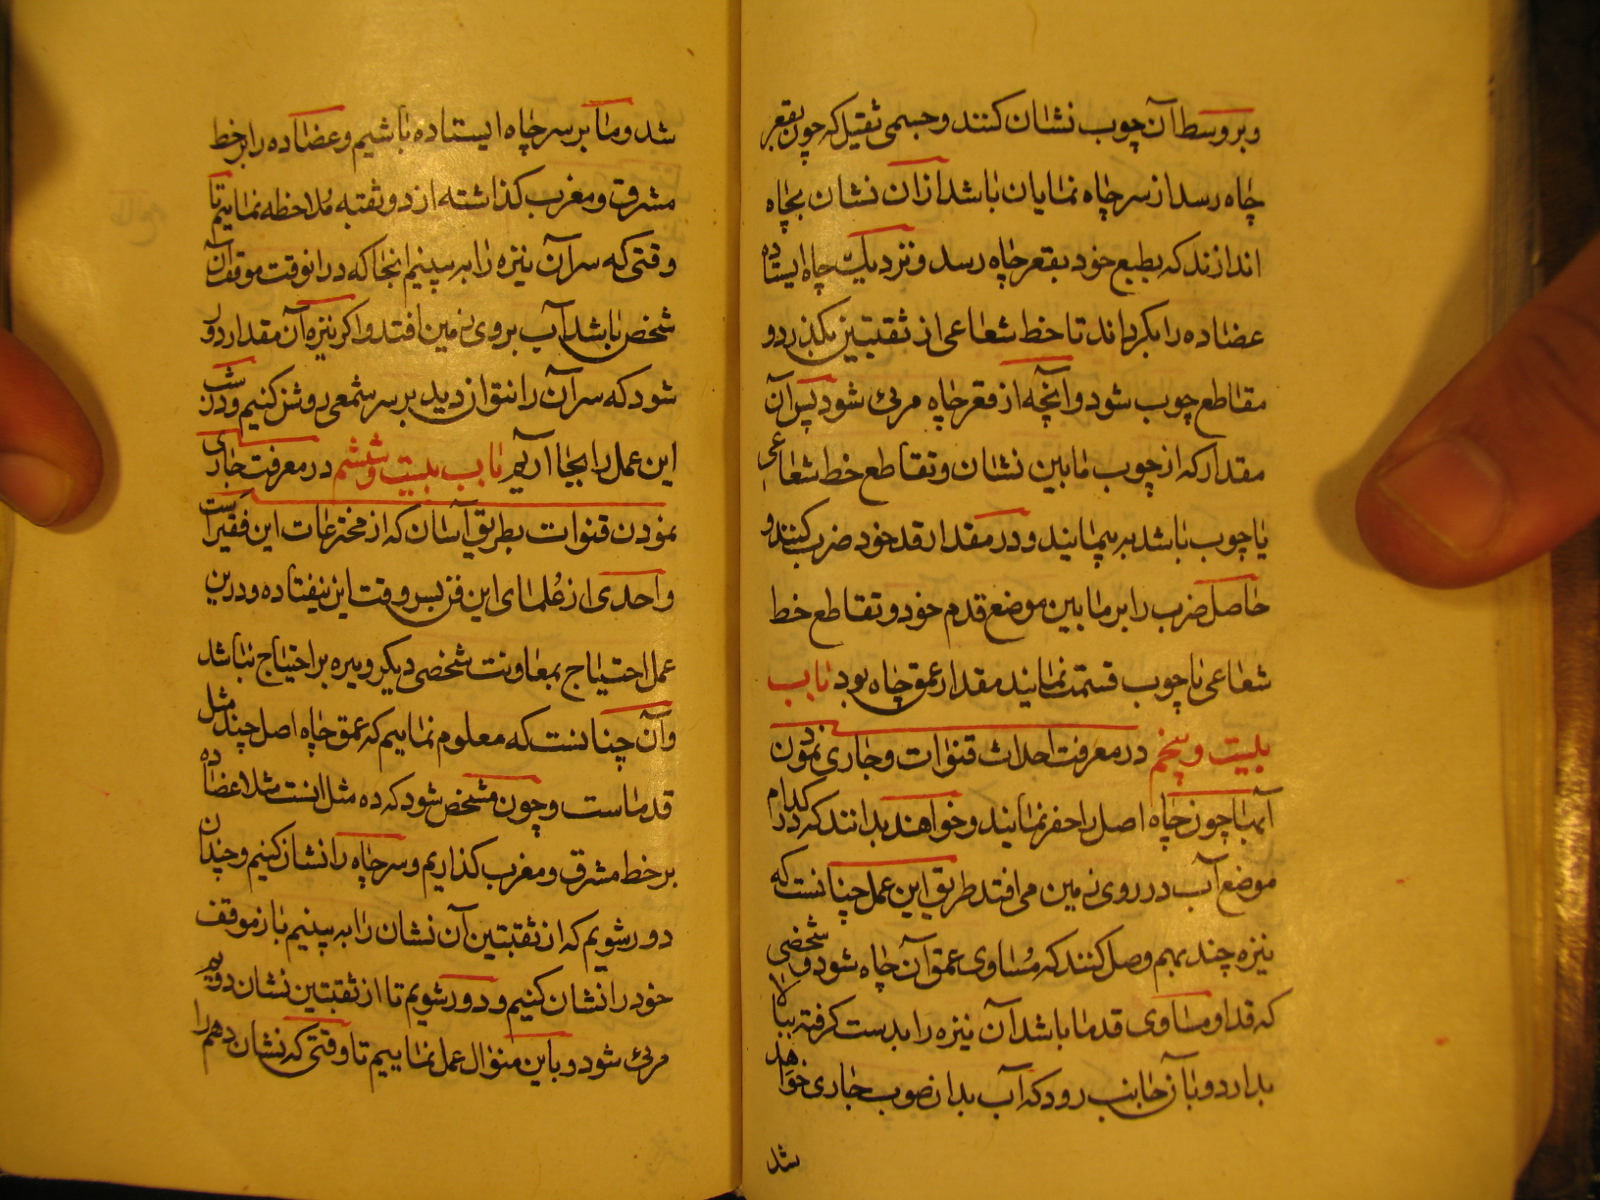 و بر وسط آن چوب نشان کنند و جسمی ثقیل که چون بقعر
چاه رسد از سر چاه نمایان باشد از ان نشان بچاه
اندازند که بطبع خود بقعر چاه رسد و نزدیک چاه ایستاده
عضاده را بکرداند تا خط شعاعی از ثقبتین بکذرد و
مقاطع چوب شود و انچه از قعر چاه مرئ شود پس آن
مقدار که از چوب مابین نشان و تقاطع خط شعاعی
با چوب باشد به پیمایند و در مقدار قد خود ضرب کنند و
حاصل ضرب را بر مابین موضع قدم خود و تقاطع خط
شعاعی با چوب قسمت نمایند مقدار عمق چاه بود باب
بیست و پنجم در معرفت احداث قنوات و جاری نمودن
آبها چون چاه اصل را حفر نمایند و خواهند بدانند که در کدام
موضع آب در روی زمین می افتد طریق این عمل چنانست که
نیزه چند بهم وصل کنند که مساوی عمق آن چاه شود و شخصی
که قد او مساوی قد ما باشد آن نیزه را بدست کرفته ببالا
بدارد و بآن جانب رود که آب بدان صوب جاری خواهد
شد
شد و ما بر سر چاه ایستاده باشیم و عضاده را بر خط
مشرق و مغرب کذاشته از دو ثقبه ملاحظه نماییم تا
وقتی که سر آن نیزه را به بینیم انجا که در انوقت موقف آن
شخص باشد آب بروی زمین افتد و اکر نیزه آن مقدار دور
شود که سر آن را نتوان دید بر سر شمعی روشن کنیم و در شب
این عمل را بجا آریم باب بیست و ششم در معرفت جاری
نمودن قنوات بطریق آسان که از مخترعات این فقیر است
و احدی از علمای این فن بسر وقت این نیفتاده و درین
عمل احتیاج بمعاونت شخصی دیکر و نیزه بر احتیاج نباشد
و آن چنانست که معلوم نماییم که عمق چاه اصل چند مثل
قد ماست و چون مشخص شود که ده مثل انست مثلا عضاده
بر خط مشرق و مغرب کذاریم و سر چاه را نشان کنیم و چندان
دور شویم که از ثقبتین آن نشان را به بینیم باز موقف
خود را نشان کنیم و دور شویم تا از ثقبتین نشان دویم
مرئ شود و باین منوال عمل نماییم تا وقتی که نشان دهم را